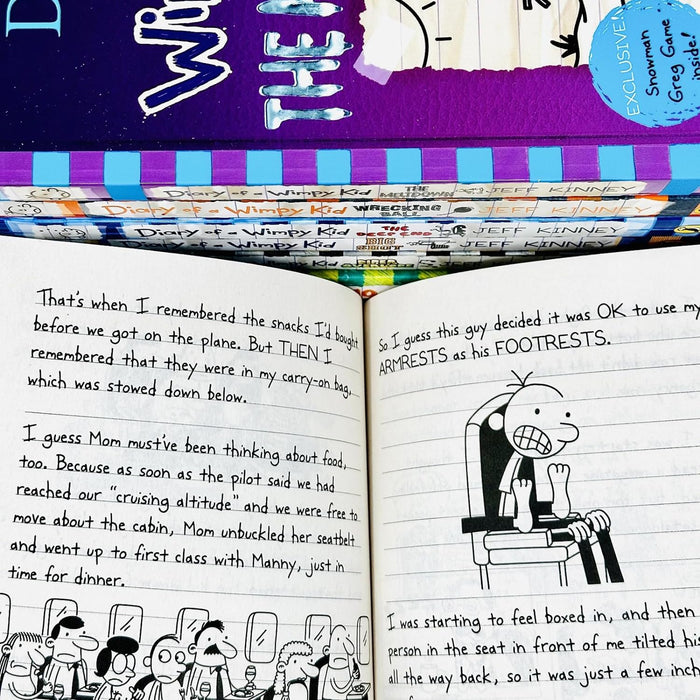 D
Wim
THE M
EXCLUSIVE!
Snowman
Greg Game
inside!
Diary of a Wimpy Kid THE MELTDOWN JEFF KINNEY
Diary of a Wimpy Kid WRECKING BALL JEFF KINNEY
Diary of a Wimpy Kid THE DEEP END JEFF KINNEY
Diary of a Wimpy Kid BIG SHOT JEFF KINNEY
That's when I remembered the snacks I'd bought
before we got on the plane. But THEN I
remembered that they were in my carry-on bag,
which was stowed down below.
I guess Mom must've been thinking about food,
too. Because as soon as the pilot said we had
reached our "cruising altitude" and we were free to
move about the cabin, Mom unbuckled her seatbelt
and went up to first class with Manny, just in
time for dinner.
So I guess this guy decided it was OK to use my
ARMRESTS as his FOOTRESTS.
I was starting to feel boxed in, and then
person in the seat in front of me tilted his
all the way back, so it was just a few inch